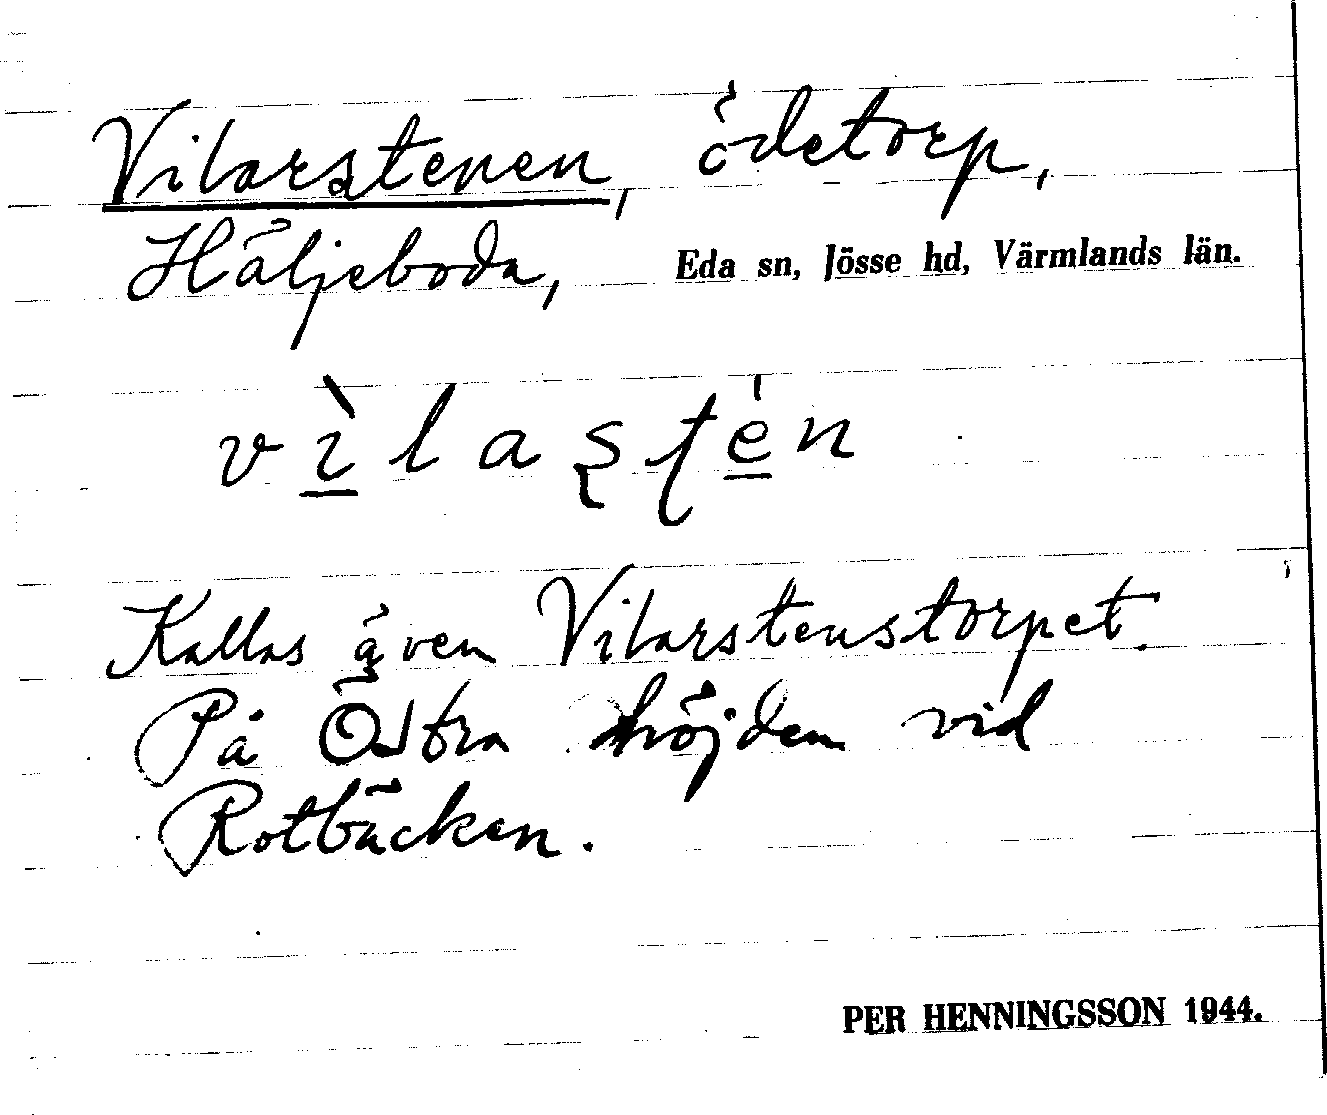 Vilarstenen, ödetorp,
Häljeboda, Eda sn, Jösse hd, Värmlands län.
vìlas̨tén
Kallas även Vilarstenstorpet.
På Östra höjden vid
Rotbäcken.
PER HENNINGSSON 1944.